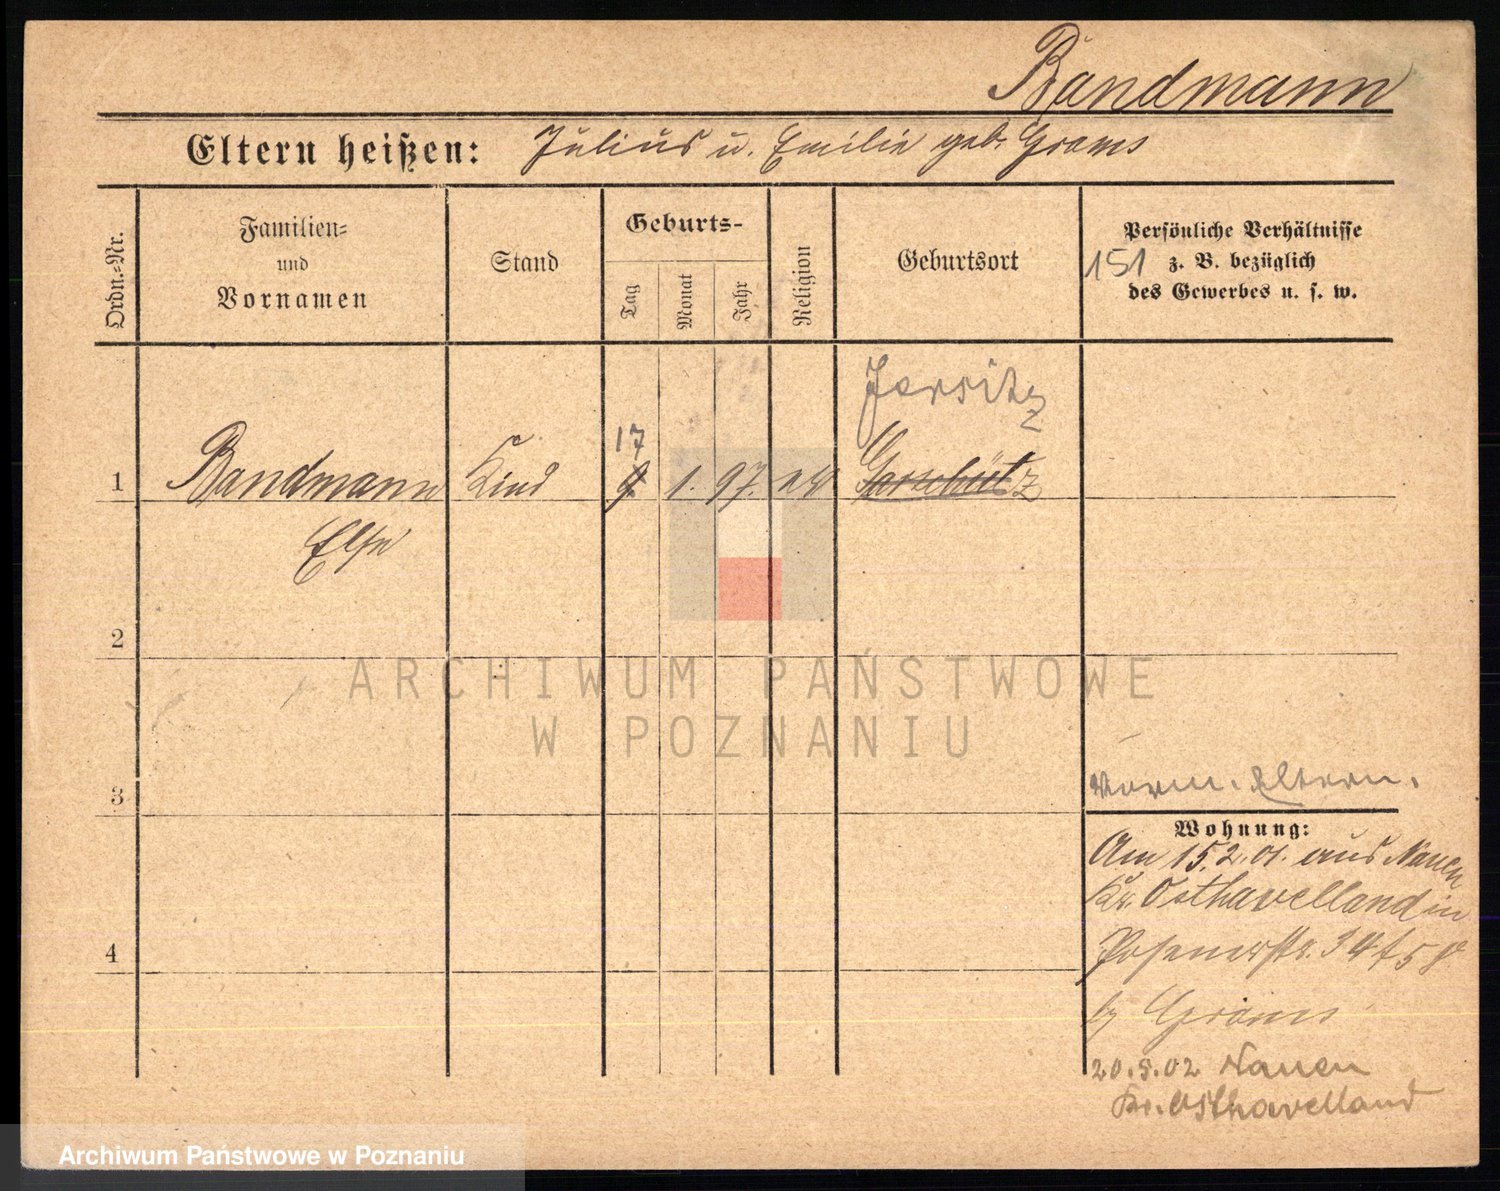 Bandmann
Eltern heißen: Julius u. Emilie geb. Grams
Ordn.-Nr.
Familien-
und
Vornamen
Stand
Geburts-
Tag
Monat
Jahr
Religion
Geburtsort
Persönliche Verhältnisse
z. B. bezüglich
des Gewerbes u. s. w.
151
Jersitz
17
1 Bandmann Kind 9 1. 97.
Else
2
3
4
Eltern.
Wohnung:
Am 15.2.01. aus Nauen
Kr. Osthavelland in
Posenerstr. 34
Grams
20.5.02 Nauen
Kr. Osthavelland
ARCHIWUM PAŃSTWOWE
W POZNANIU
Archiwum Państwowe w Poznaniu